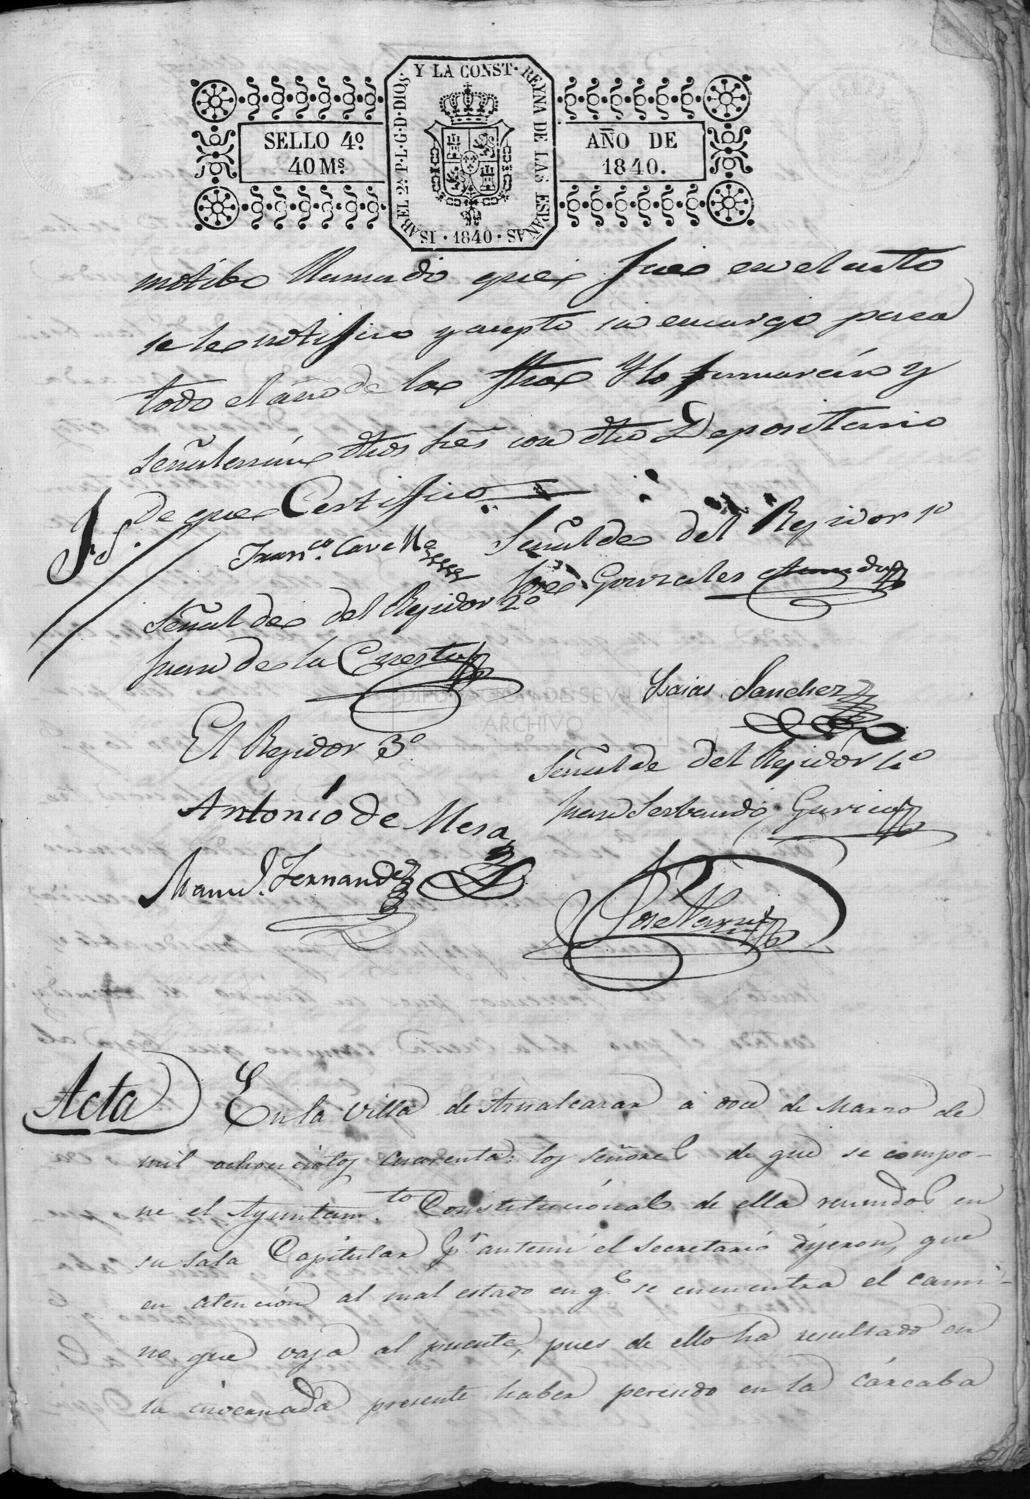 ISABEL 2ª P. L. G. D. DIOS Y LA CONST. REYNA DE LAS ESPAÑAS
SELLO 4º
40 Ms
AÑO DE
1840.
· 1840 ·
motibo llamado que fue en el acto
se le notifico y acepto su encargo para
todo el año de la fha y lo firmarán y
señalarán dhos Sres con dho Depositario
de que Certifico
Franco. Cavello
Señal de del Rejidor 1º
José Gonzales
Señal de del Rejidor 2º
Juan de la Cuesta
Isaias Sanchez
El Rejidor 3º
Señal de del Rejidor 4º
Antonio de Mesa
Juan Serbando Garcia
Manul. Fernandez
José Narvaez
DIPUTACION DE SEVILLA
ARCHIVO
Acta
En la Villa de Aznalcazar á doce de Marzo de
mil ochocientos cuarenta: los señores de que se compo-
ne el Ayuntamto. Constitucional de ella reunidos en
su sala Capitular pr. antemi el secretario dijeron, que
en atencion al mal estado en qe se encuentra el cami-
no que vaja al puente, pues de ello ha resultado en
la invernada presente haber perecido en la cárcaba